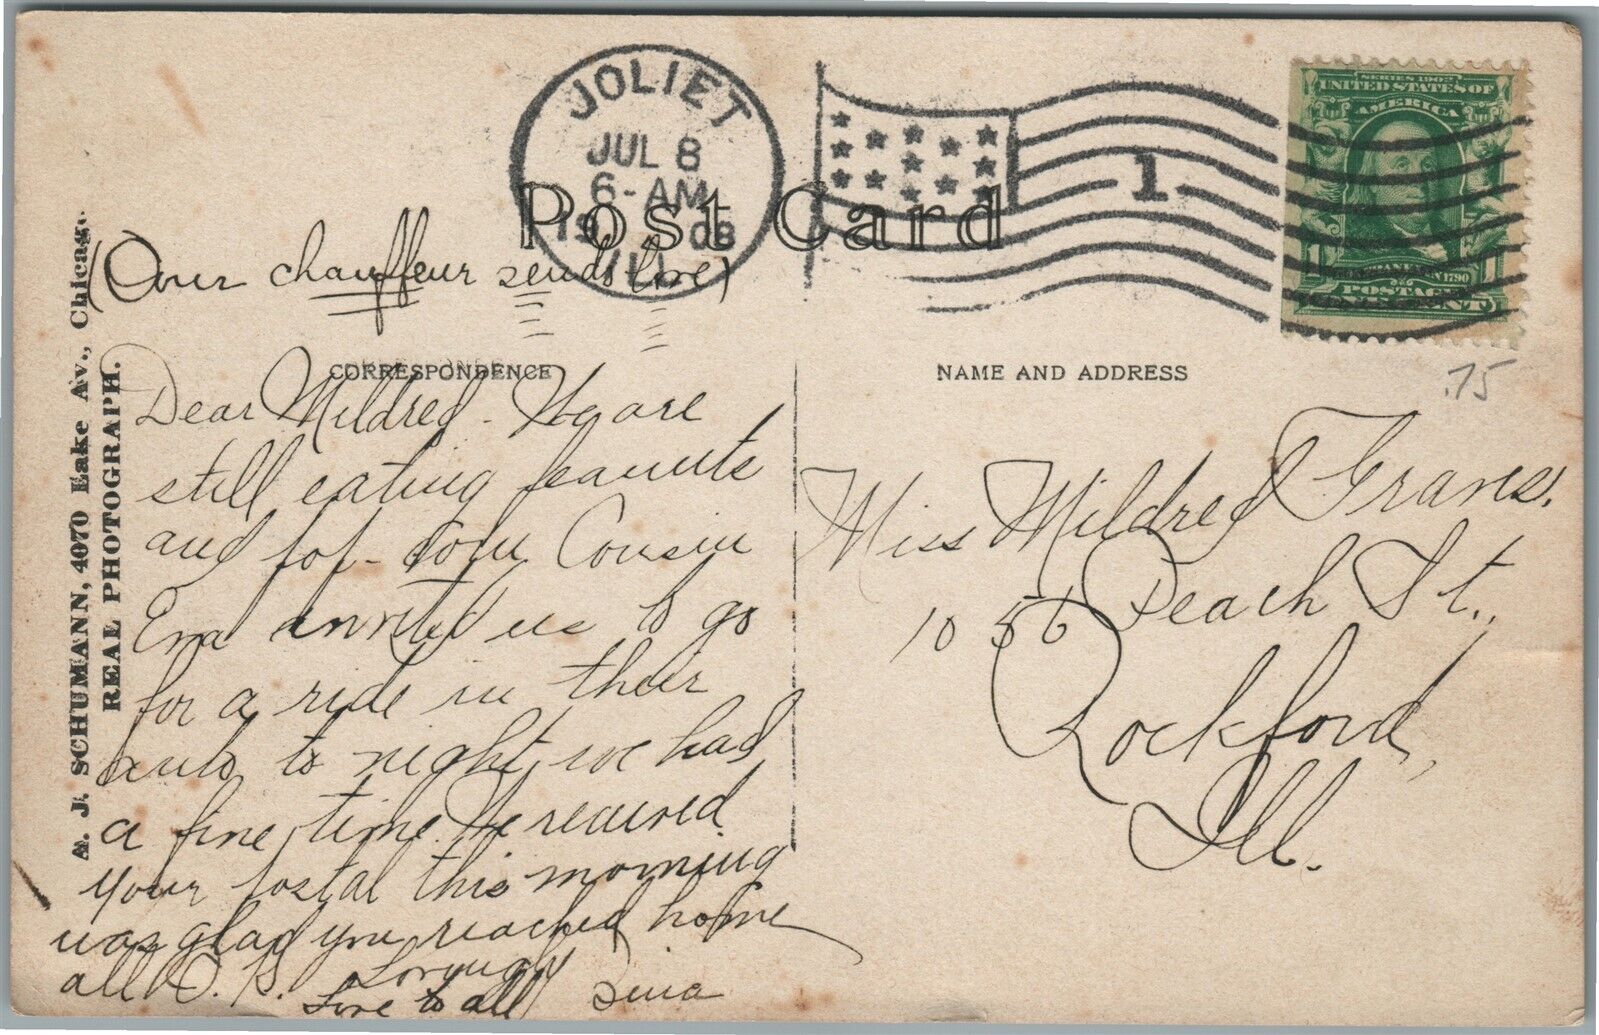 JOLIET
JUL 8
6-AM
1908
ILL.
1
SERIES 1902
UNITED STATES OF
AMERICA
1790
POSTAGE
Post Card
(Our chauffeur sends love)
CORRESPONDENCE
NAME AND ADDRESS
.75
A. J. SCHUMANN, 4070 Lake Av., Chicago.
REAL PHOTOGRAPH.
Dear Mildred - We are
still eating peanuts
and pop-corn Cousin
Eva invited us to go
for a ride in their
auto to night, we had
a fine time. We received
your postal this morning
was glad you reached home
all O.K. Lovingly
Love to all
Miss Mildred
1056 Peach St.,
Rockford,
Ill.